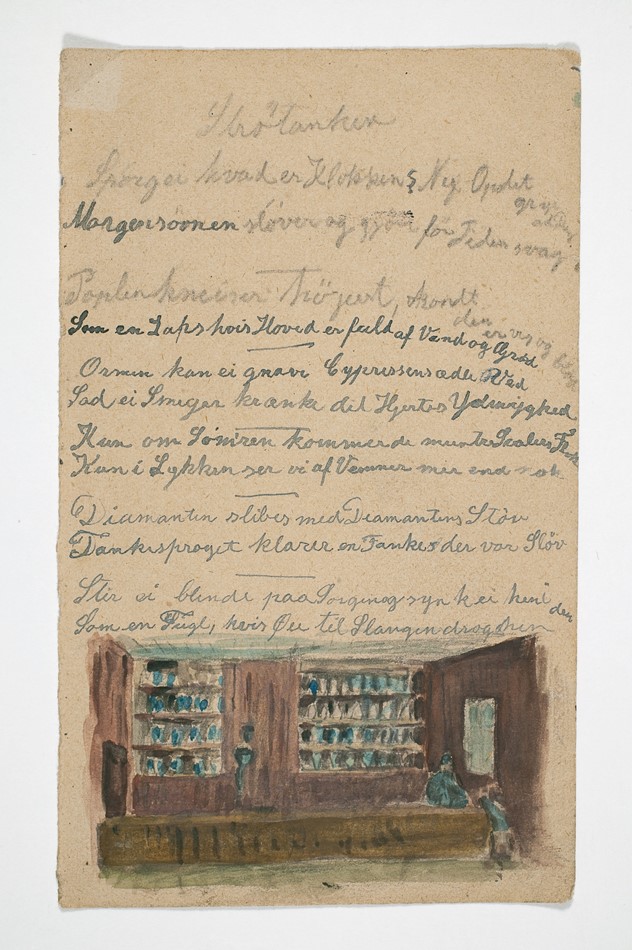 Strötanken
Spörg ei hvad er Klokken? Nei Opdet
Morgensöonen slöver og gjör for Tiden svag
Poplen kneiser trögest, skondt den er vis og
Som en Laps hvis Hoved er fuld af Vand og Gröd
Ormen kan ei gnave Cypressens ædle Ved
Sad ei Smiger krænke dit Hjertes Ydmyghed
Kun om Somren kommer de muntre Svalers Flok
Kun i Lykken ser vi af Venner mer end nok
Diamanten slibes med Diamantens Stöv
Tankesproget klarer en Tanke der var Slöv
Stir ei blinde paa Sorgen og synk ei hen i den
Som en Fugl, hvis Öie til Slangen drages hen